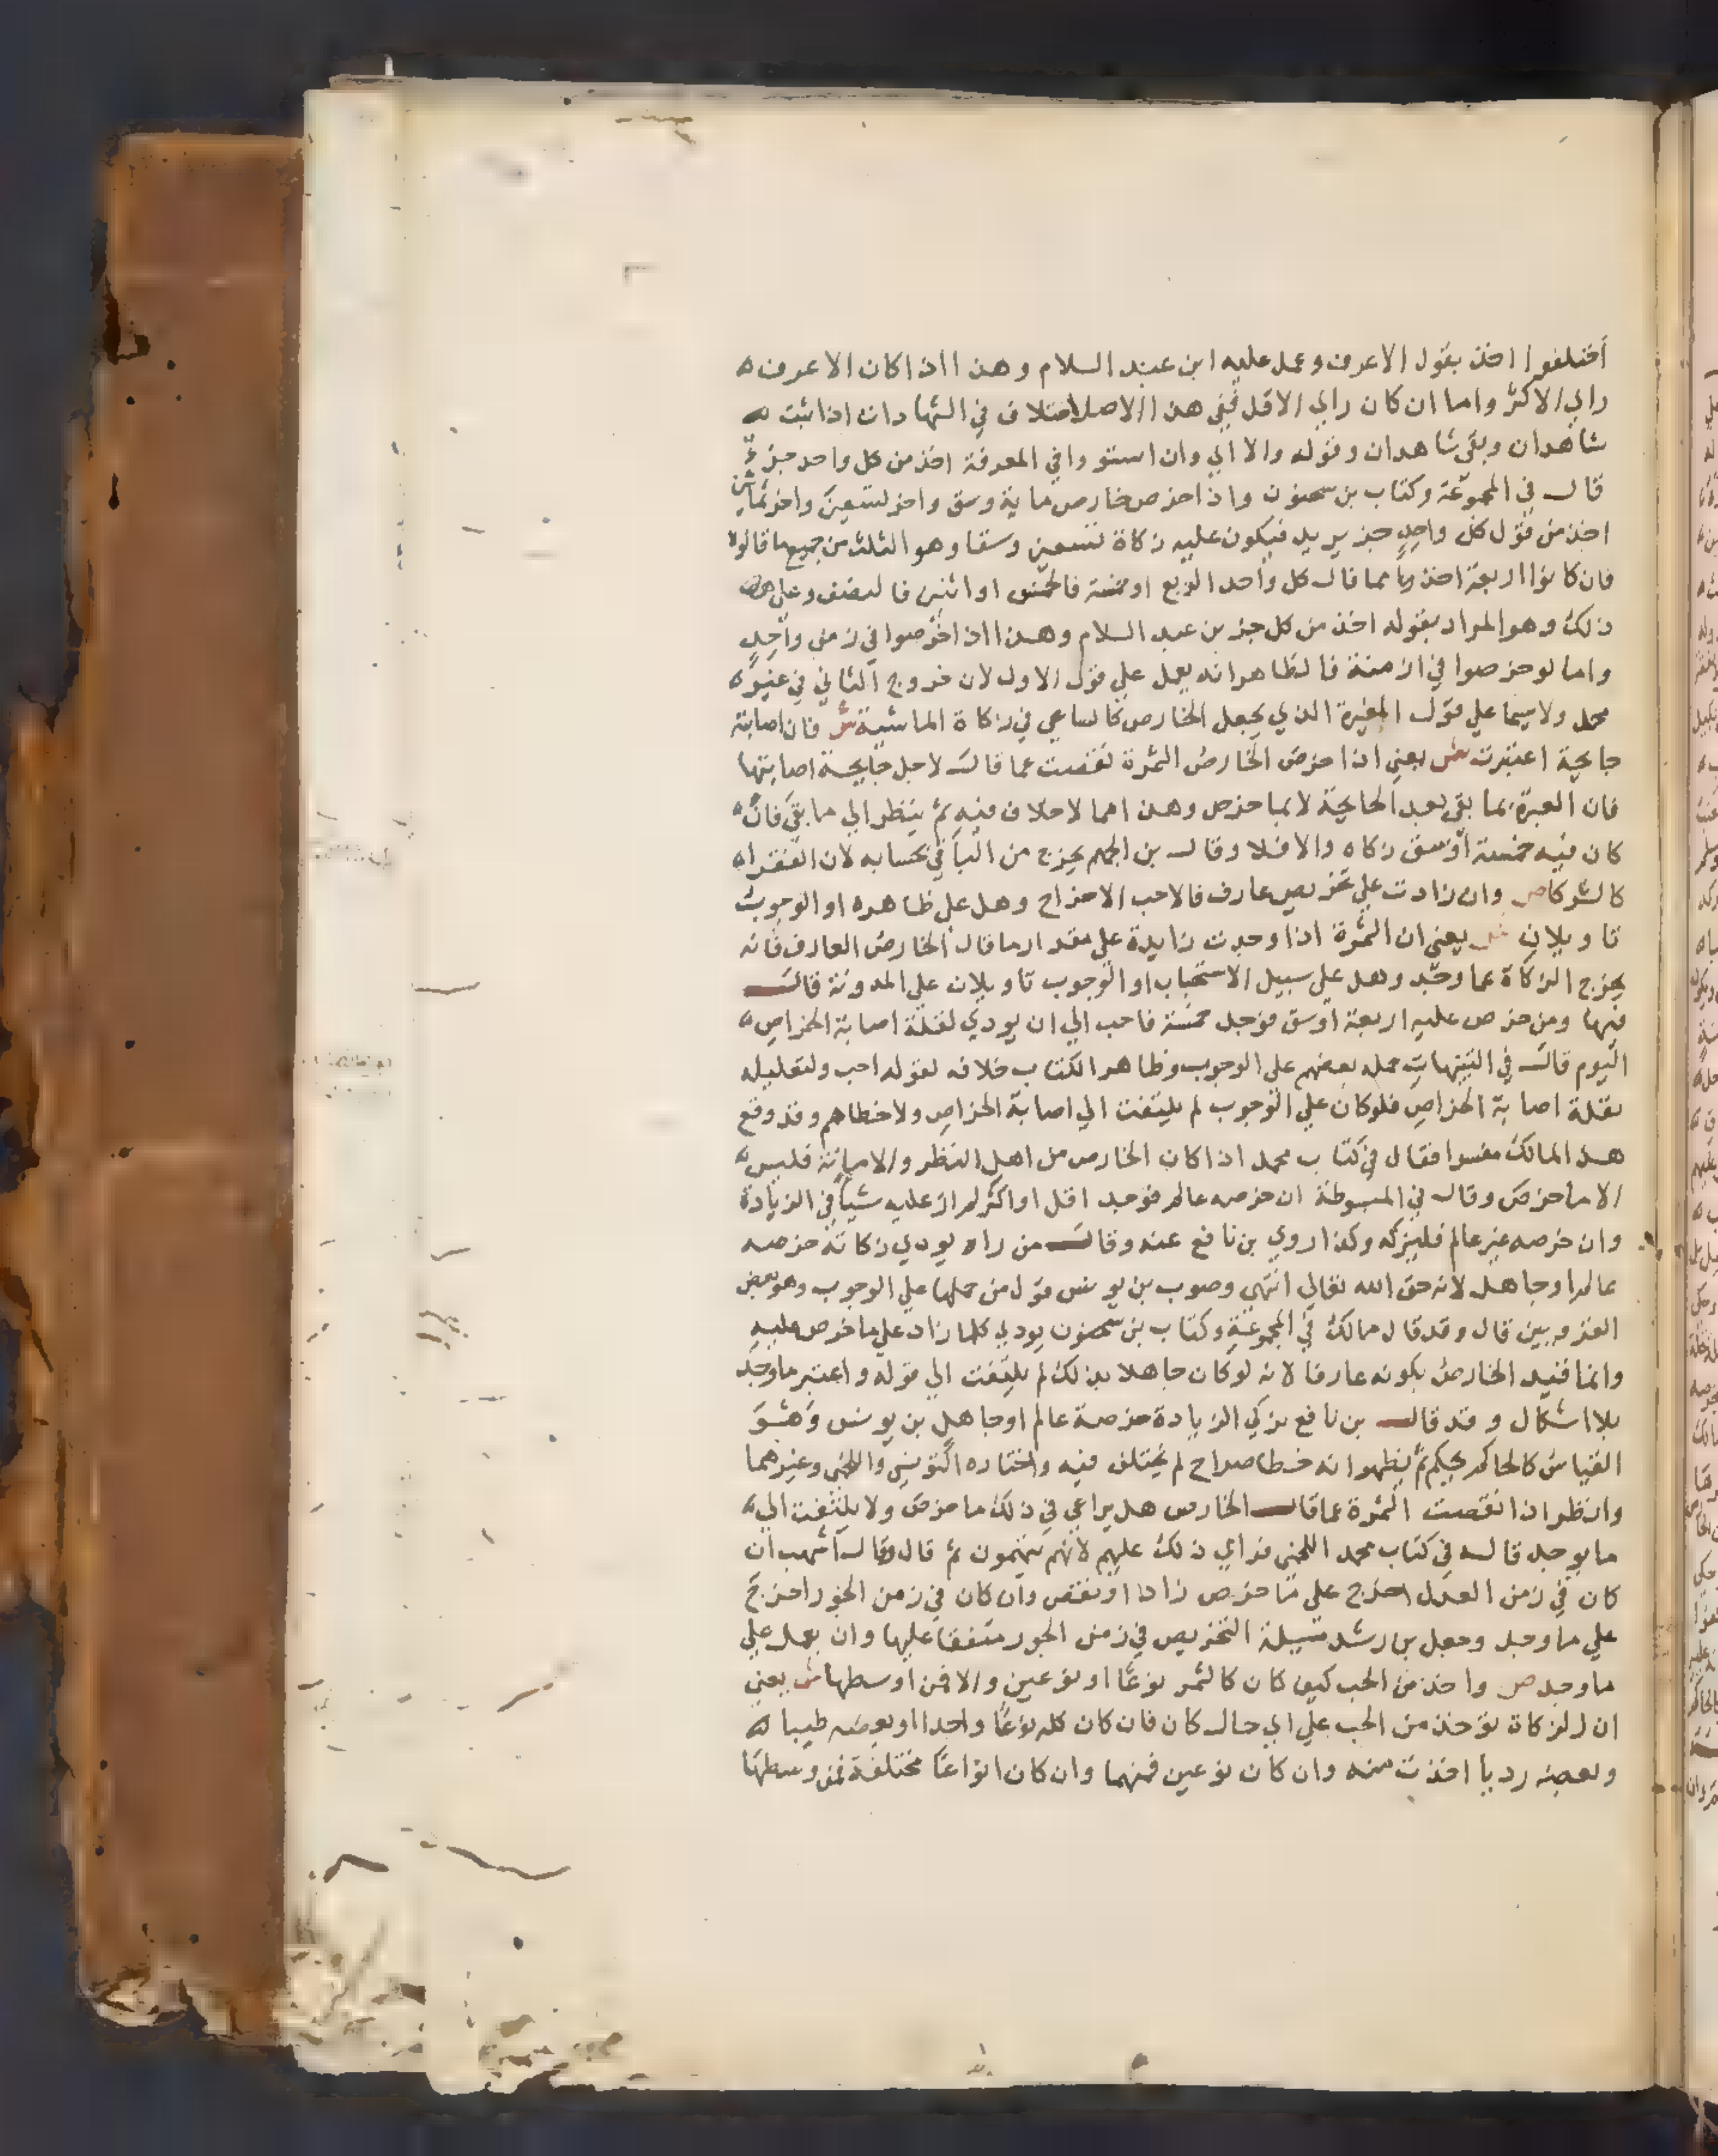 اختلفوا اخذ بقول الاعرف وعمل عليه ابن عبد السلام وهذا اذا كان الاعرف
راي الاكثر واما ان كان راي الاقل فيبني هذا الاصل اختلاف في الشهادات اذا ثبت
شاهدان وبقي شاهدان وقوله والا اي وان استووا في المعرفة اخذ من كل واحد جزء
قال في المجموعة وكتاب بن سحنون واذا خرص خارص ماية وسق واخر تسعين واخر ثمانين
اخذ من قول كل واحد جز يريد فيكون عليه زكاة تسعين وسقا وهو الثلث من جميع ما قالوا
فان كانوا اربعة اخذ مما قال كل واحد الربع او خمسة فالخمس او اثنين فالنصف وعلى هذا
ذلك وهو المراد بقوله اخذ من كل جز بن عبد السلام وهذا اذا خرصوا في زمن واحد
واما لو خرصوا في ازمنة فالظاهر انه يعمل علي قول الاول لان خروج الثاني في غير
محل ولا سيما علي قول المغيرة الذي يجعل الخارص كالساعي في زكاة الماشية ش فان اصابته
جايحة اعتبرت ش يعني اذا خرص الخارص الثمرة نقصت عما قال لاجل جايحة اصابتها
فان العبرة بما بقي بعد الجايحة لا بما خرص وهذا مما لا خلاف فيه ثم ينظر الي ما بقي فان
كان فيه خمسة اوسق زكاه والا فلا وقال بن الجهم يخرج من الباقي بحسابه لان الفقرا
كالشركا ص وان زادت علي تخريص عارف فالاحب الاخراج وهل علي ظاهره او الوجوب
تاويلان ش يعني ان الثمرة اذا وجدت زايدة علي مقدار ما قال الخارص العارف فانه
يخرج الزكاة عما وجد وهل علي سبيل الاستحباب او الوجوب تاويلان علي المدونة قال
فيها ومن خرص عليه اربعة اوسق فوجد خمسة فاحب الي ان يودي لقلة اصابة الخراص
اليوم قال في التنبيهات حمله بعضهم علي الوجوب وظاهر الكتاب خلافه لقوله احب ولتعليله
بقلة اصابة الخراص فلو كان علي الوجوب لم يلتفت الي اصابة الخراص ولا خطاهم وقد وقع
هذا لمالك مفسرا فقال في كتاب محمد اذا كان الخارص من اهل النظر والامانة فليس
الا ما خرص وقال في المبسوطة ان خرصه عالم فوجد اقل او اكثر لم ار عليه شيا في الزيادة
وان خرصه غير عالم فليزكه وكذا روي بن نافع عنه وقال من راه يودي زكاته خرصه
عالم او جاهل لانه حق الله تعالي انتهي وصوب بن يونس قول من حملها علي الوجوب وهو بعض
القرويين قال وقد قال مالك في المجموعة وكتاب بن سحنون يودي كلما زاد علي ما خرص عليه
وانما قيد الخارص بكونه عارفا لانه لو كان جاهلا بذلك لم يلتفت الي قوله واعتبر ما وجد
بلا اشكال وقد قال بن نافع يزكي الزيادة خرصه عالم او جاهل بن يونس وهو
القياس كالحاكم يحكم ثم يظهر انه خطا صراح لم يختلف فيه واختاره التونسي واللخمي وغيرهما
وانظر اذا نقصت الثمرة عما قال الخارص هل يراعي في ذلك ما خرص ولا يلتفت الي
ما يوجد قاله في كتاب محمد اللخمي فراي ذلك عليهم لانهم يتهمون ثم قال وقال اشهب ان
كان في زمن العدل اخرج علي ما خرص زاد او نقص وان كان في زمن الجور اخرج
علي ما وجد وجعل بن رشد مسيلة التخريص في زمن الجور متفقا عليها وان يعمل علي
ما وجد ص واخذ من الحب كيف كان كالثمر نوعا او نوعين والا فمن اوسطها ش يعني
ان الزكاة توخذ من الحب علي اي حال كان فان كان كله نوعا واحدا او بعضه طيبا
وبعضه رديا اخذت منه وان كان نوعين فمنهما وان كان انواعا مختلفة فمن وسطها